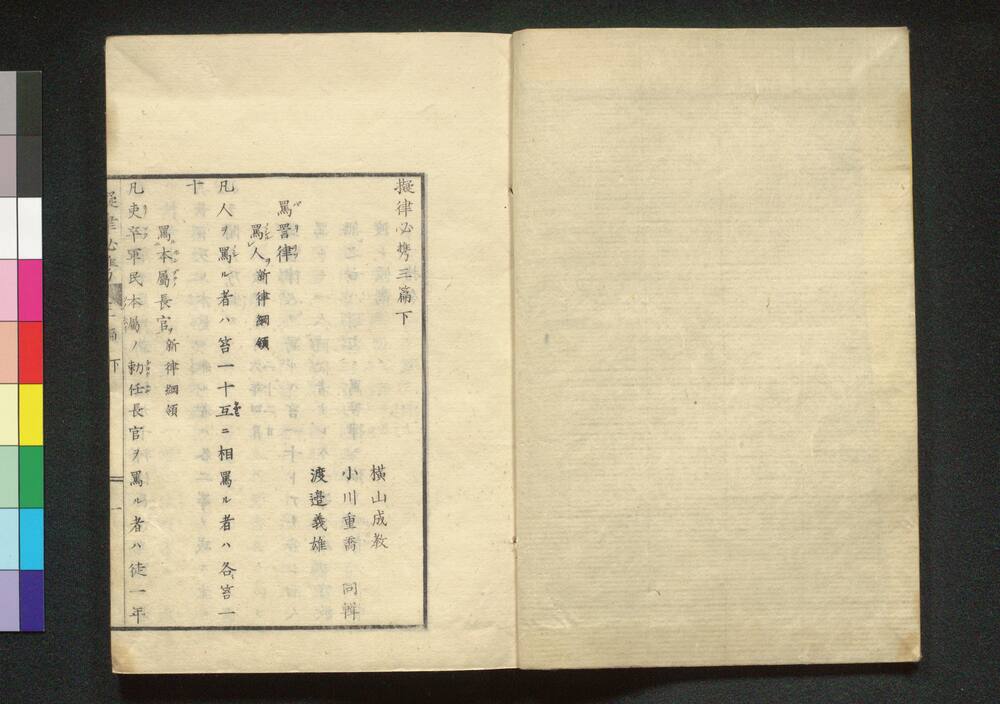 擬律必携三篇下
横山成教
小川重喬 同輯
渡邉義雄
罵詈律
罵人 新律綱領
凡人ヲ罵ル者ハ笞一十互ニ相罵ル者ハ各笞一
十
罵本屬長官 新律綱領
凡吏卒軍民本屬ノ勅任長官ヲ罵ル者ハ徒一年
下
一